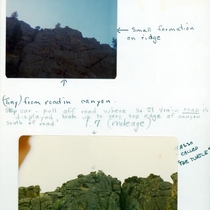 Small formation
on ridge
(Say) from road in canyon.
Stop car - pull off road where So St Vrain road is
displayed, look up to very top edge of canyon
south of road. (mileage)
ALSO
CALLED
"THE TURTLE"